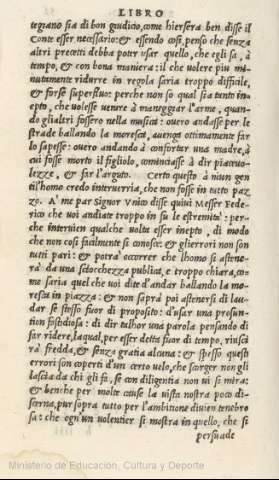 LIBRO
tegiano sia di bon giudicio, come hiersera ben disse il
Conte esser necessario: & essendo cosi, penso che senza
altri precetti debba poter usar quello, che egli sa, à
tempo, & con bona maniera: il che volere piu mi
nutamente ridurre in regola saria troppo difficile,
& forse superfluo: perche non so qual sia tanto in=
epto, che volesse venire à maneggiar l'arme, quan
do gli altri fossero nella musica: overo andasse per le
strade ballando la moresca, avenga ottimamente far
lo sapesse: overo andando à confortar una madre, à
cui fosse morto il figliolo, cominciasse à dir piacevo=
lezze, & far l'arguto. Certo questo à niun gen
til'homo credo interverria, che non fosse in tutto paz
zo. A' me par Signor Vnico disse quivi Messer Fede=
rico che voi andiate troppo in su le estremità: per=
che intervien qualche volta esser inepto, di modo
che non cosi facilmente si conosce: & gli errori non son
tutti pari: & potrà occorrer che l'homo si astene=
rà da una sciocchezza publica, e troppo chiara, co=
me saria quel che voi dite d'andar ballando la mo=
resca in piazza: & non saprà poi astenersi di lau=
dar se stesso fuor di proposito: d'usar una prosun=
tion fastidiosa: di dir talhor una parola pensando di
far ridere, la qual, per esser detta fuor di tempo, riusci
rà fredda, & senza gratia alcuna: & spesso questi
errori son coperti d'un certo velo, che scorger non gli
lascia da chi gli fa, se con diligentia non vi si mira:
& benche per molte cause la vista nostra poco di=
scerna, pur sopra tutto per l'ambitione divien tenebro
sa: che ogn'un volentier si mostra in quello, che si
persuade
Ministerio de Educación, Cultura y Deporte